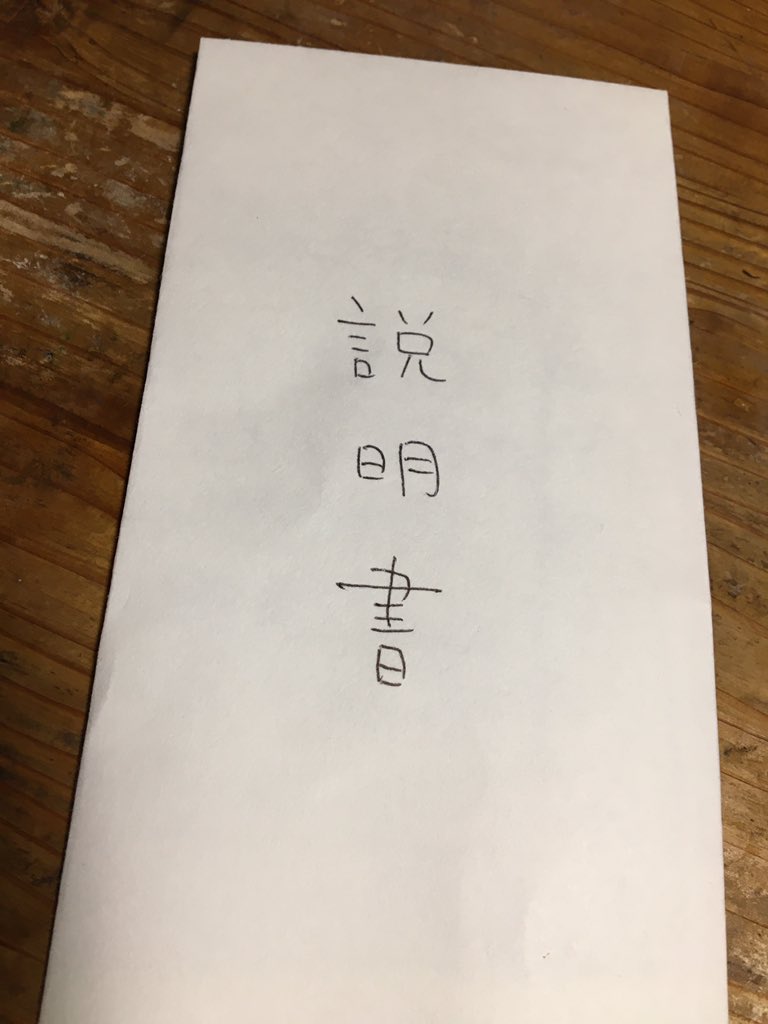 説明書